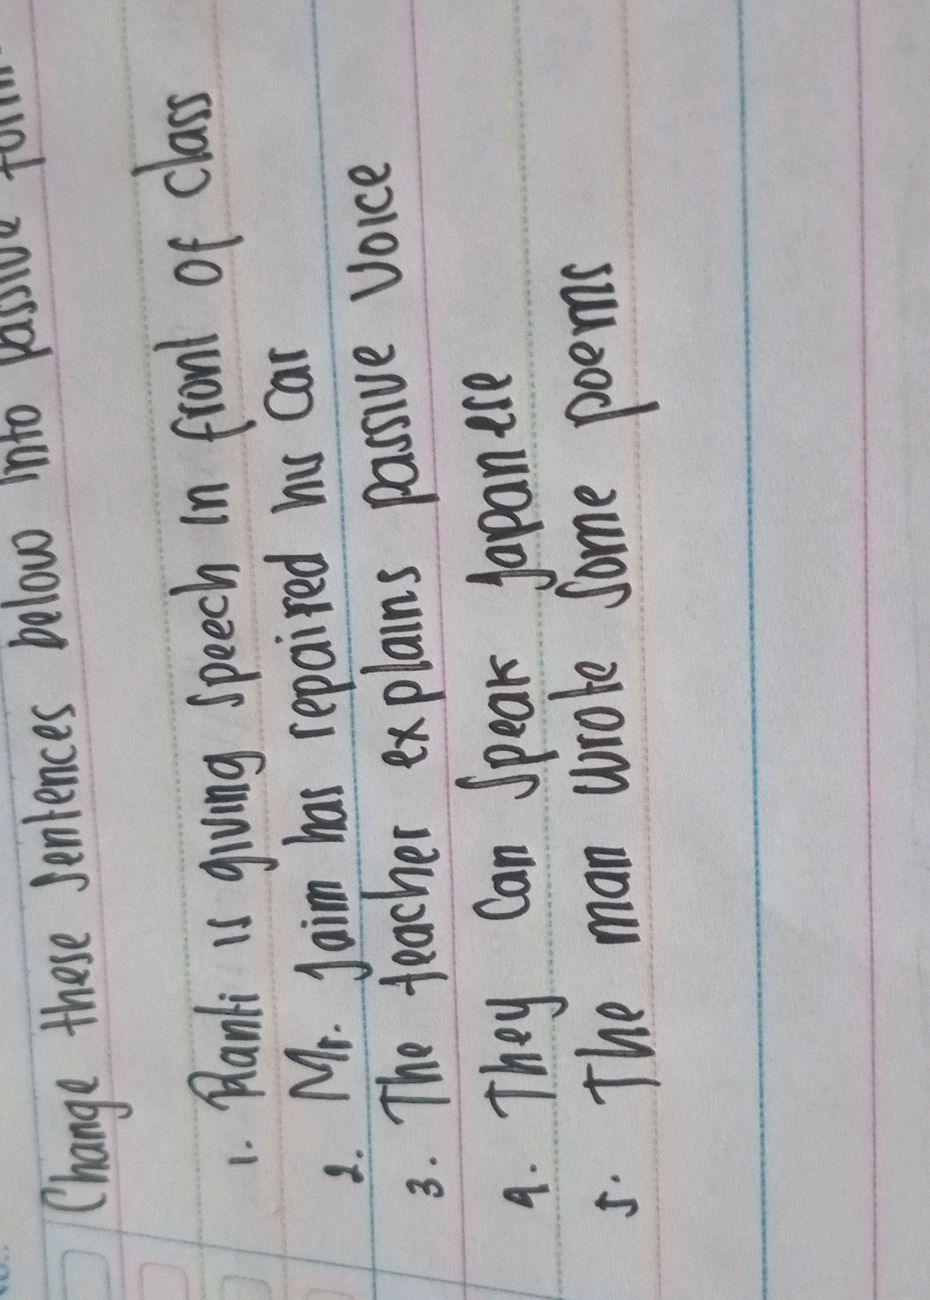 Change these sentences below into passive form.
1. Ranti is giving speech in front of class
2. Mr. Jaim has repaired his car
3. The teacher explains passive voice
4. They can speak Japanese
5. The man wrote some poems